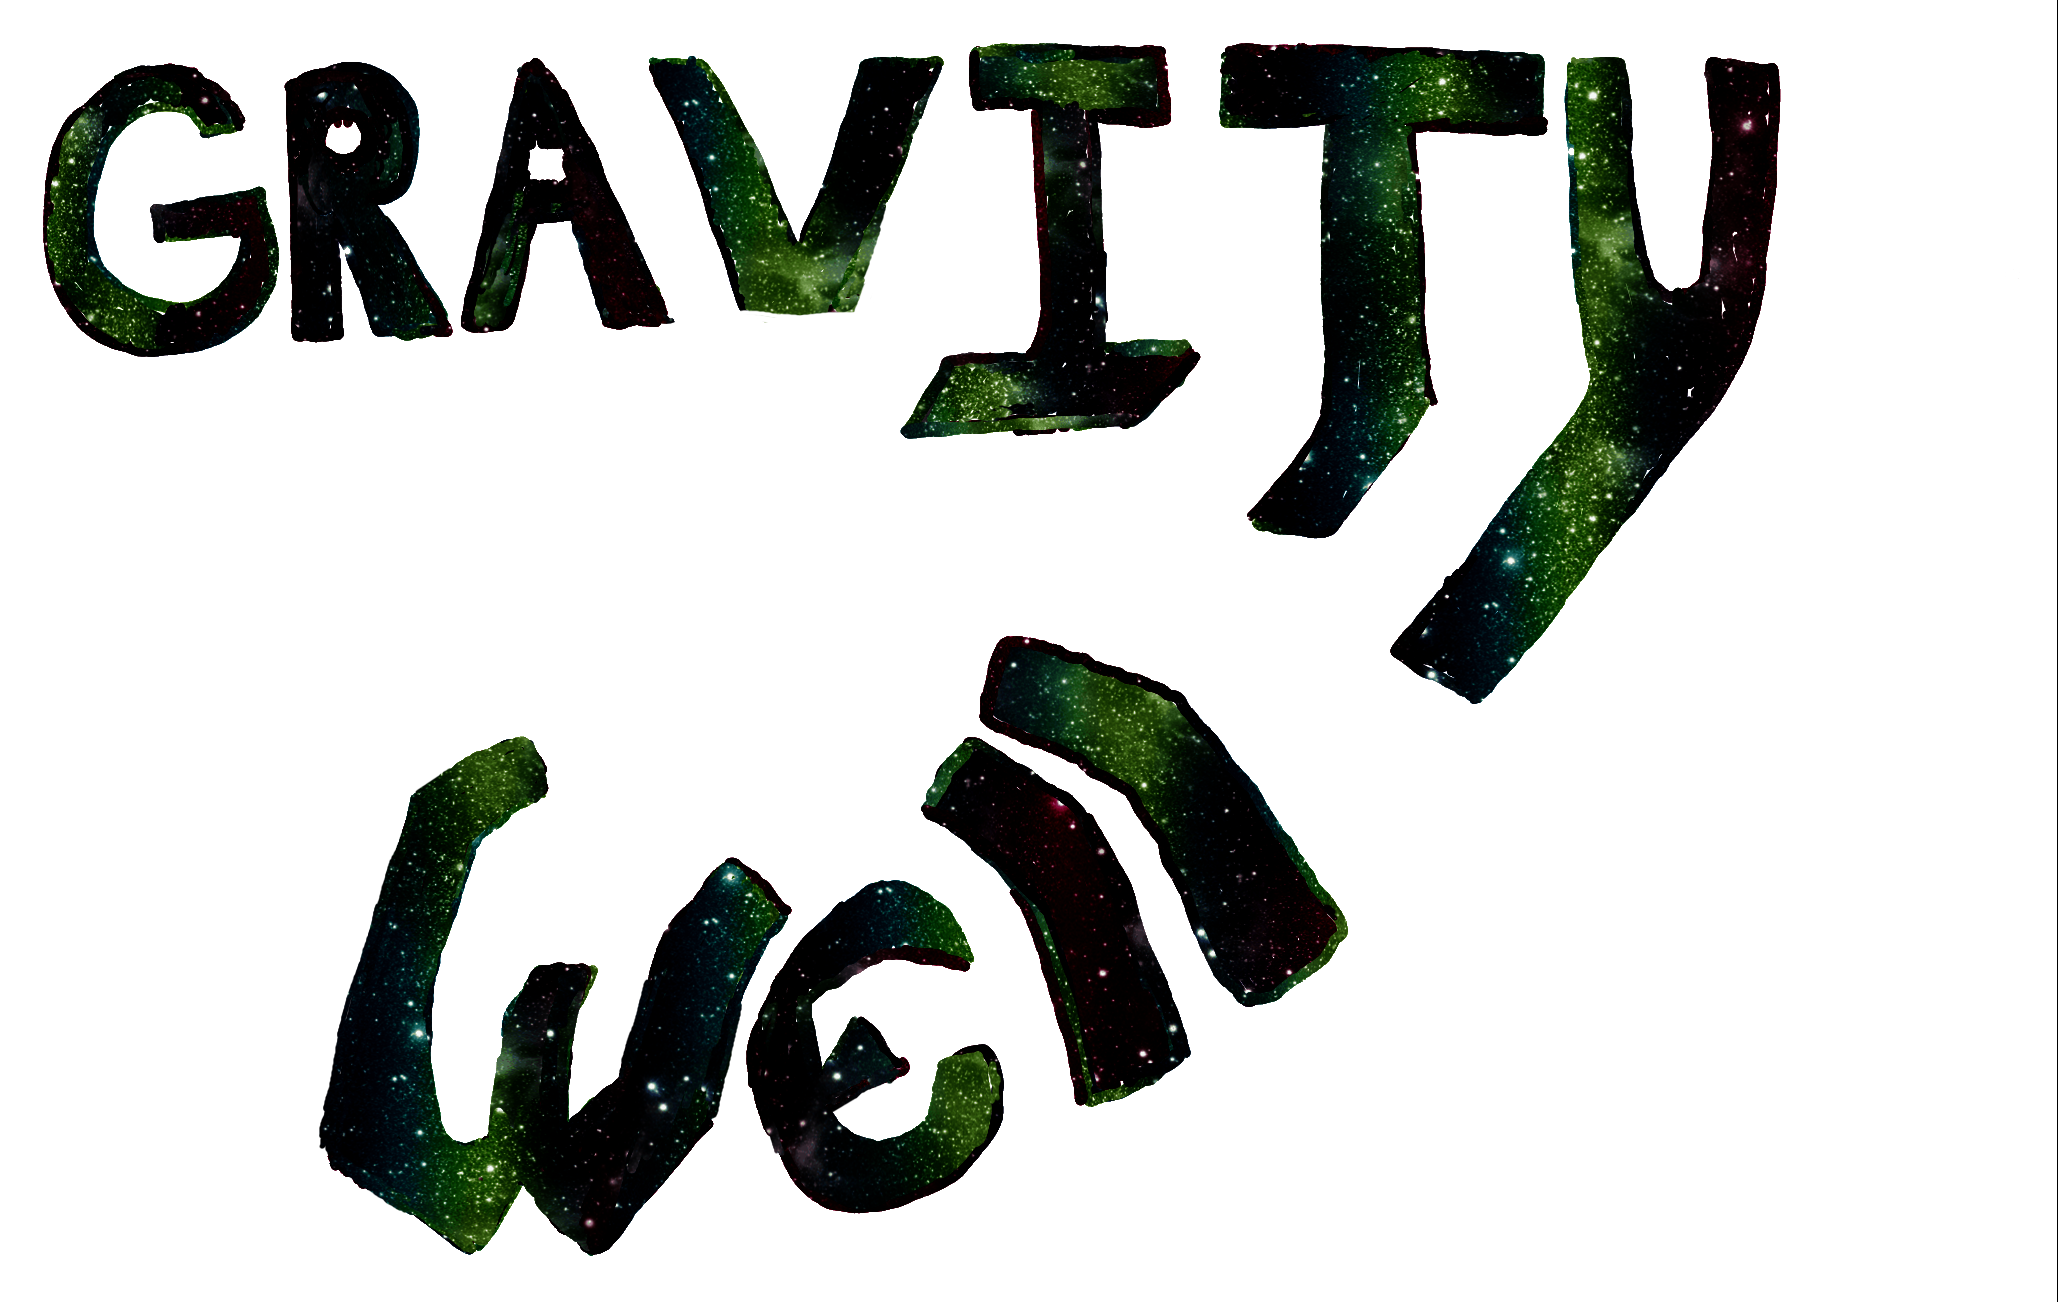 GRAVITY
Well